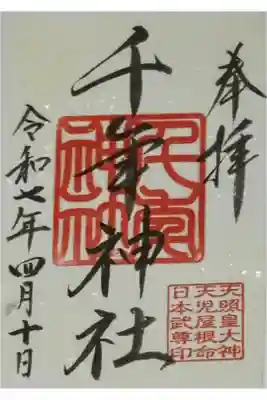 奉拝
千神社
令和七年四月十日
天照皇大神
天児屋根命
日本武尊印